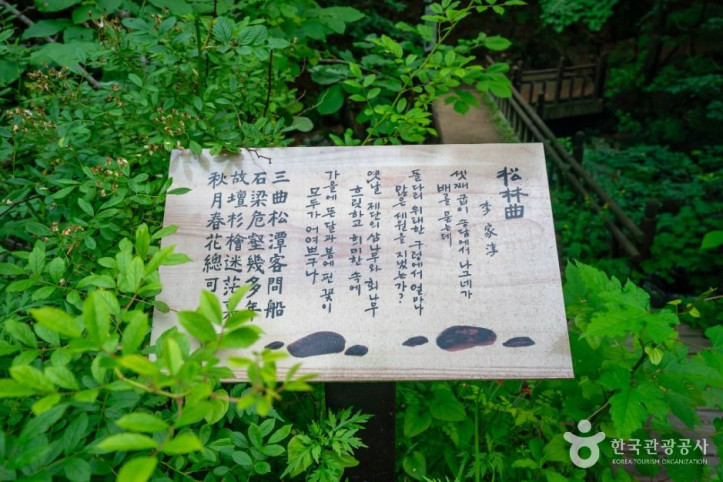 松林曲
李家淳
셋째 굽이 솔숲에서 나그네가
배를 묻는데
돌다리 위태한 구렁에서 얼마나
많은 세월을 지냈는가?
옛날 제단의 삼나무와 회나무
흐릿하고 희미한 속에
가을에 뜬 달과 봄에 핀 꽃이
모두가 어여쁘구나
三曲松潭客問船
石梁危壑幾多年
故壇杉檜迷茫
秋月春花總可
한국관광공사
KOREA TOURISM ORGANIZATION